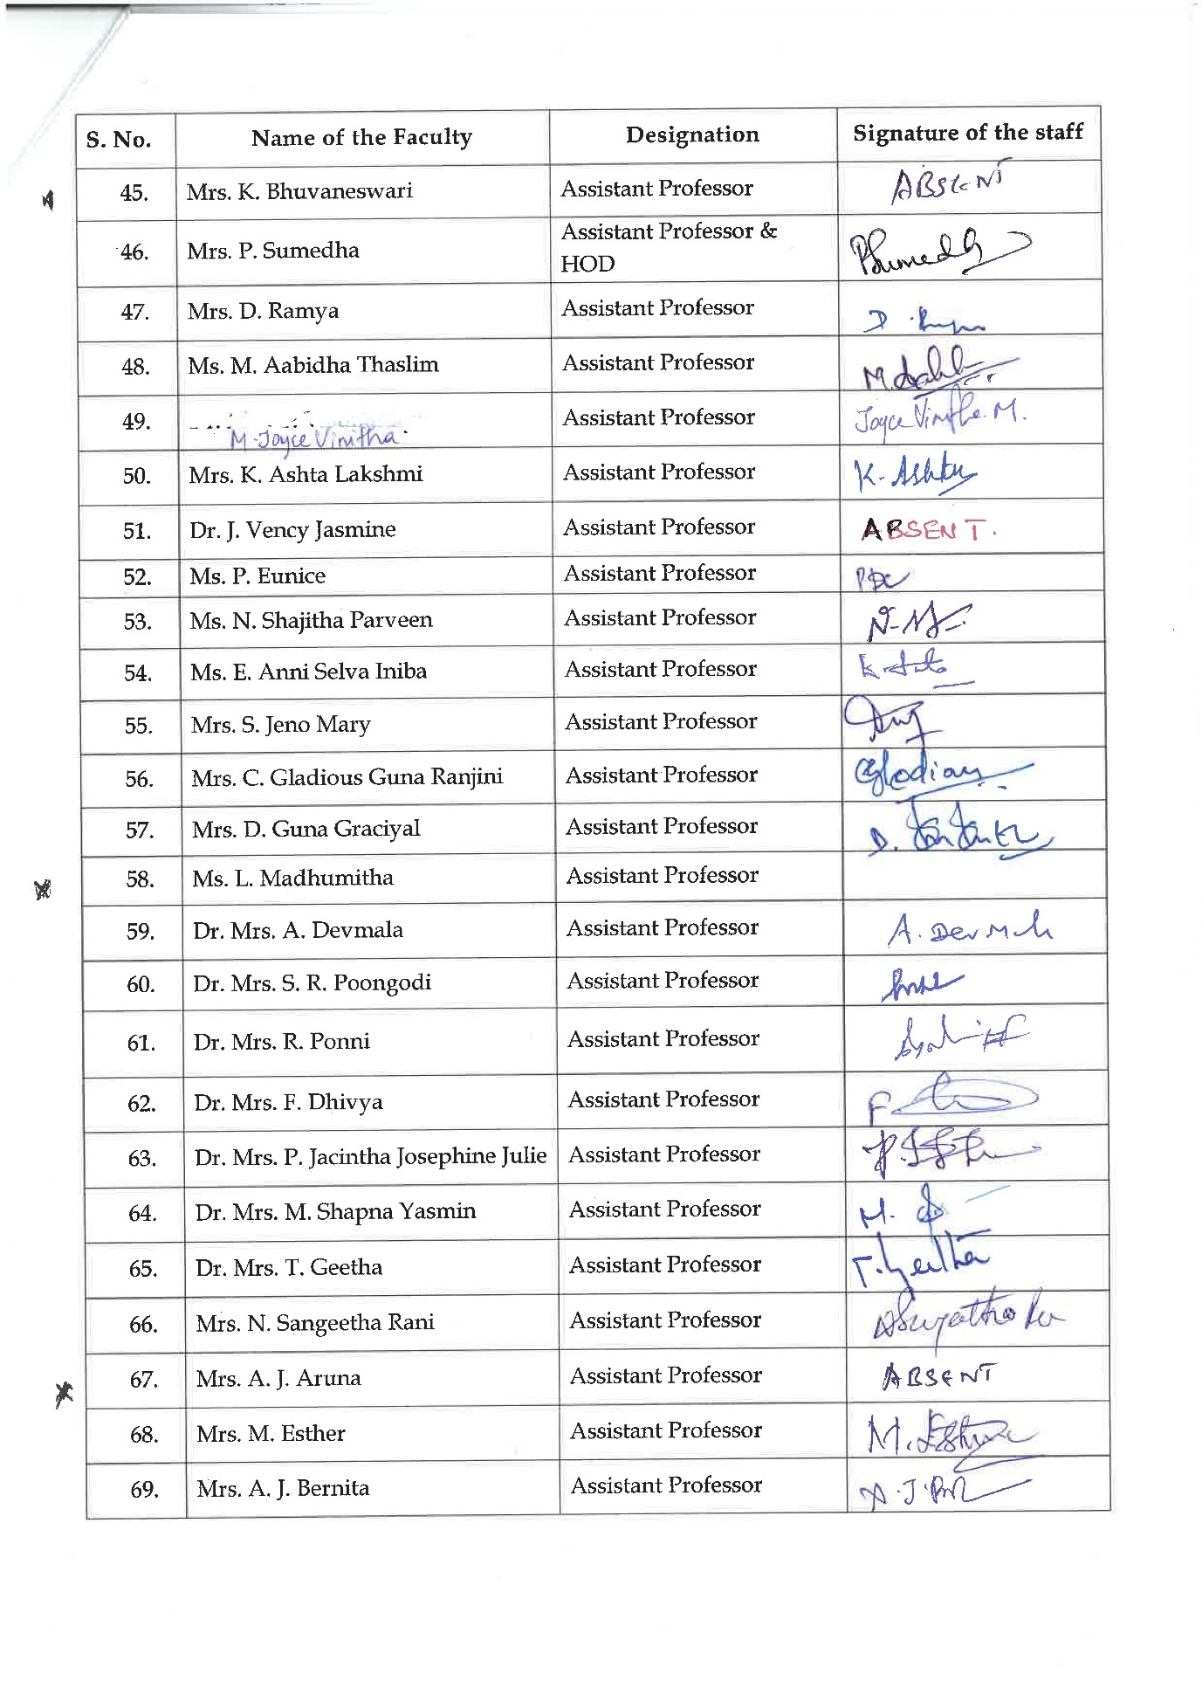 S. No. Name of the Faculty Designation Signature of the staff
45. Mrs. K. Bhuvaneswari Assistant Professor ABSENT
46. Mrs. P. Sumedha Assistant Professor &
HOD PSumedha
47. Mrs. D. Ramya Assistant Professor D.
48. Ms. M. Aabidha Thaslim Assistant Professor M.
49. M. Joyce Vinitha. Assistant Professor Joyce Vinitha. M.
50. Mrs. K. Ashta Lakshmi Assistant Professor K. Ashta
51. Dr. J. Vency Jasmine Assistant Professor ABSENT.
52. Ms. P. Eunice Assistant Professor
53. Ms. N. Shajitha Parveen Assistant Professor
54. Ms. E. Anni Selva Iniba Assistant Professor
55. Mrs. S. Jeno Mary Assistant Professor
56. Mrs. C. Gladious Guna Ranjini Assistant Professor
57. Mrs. D. Guna Graciyal Assistant Professor D.
58. Ms. L. Madhumitha Assistant Professor
59. Dr. Mrs. A. Devmala Assistant Professor A.
60. Dr. Mrs. S. R. Poongodi Assistant Professor
61. Dr. Mrs. R. Ponni Assistant Professor
62. Dr. Mrs. F. Dhivya Assistant Professor F
63. Dr. Mrs. P. Jacintha Josephine Julie Assistant Professor
64. Dr. Mrs. M. Shapna Yasmin Assistant Professor M.
65. Dr. Mrs. T. Geetha Assistant Professor T. Geetha
66. Mrs. N. Sangeetha Rani Assistant Professor
67. Mrs. A. J. Aruna Assistant Professor ABSENT
68. Mrs. M. Esther Assistant Professor M. Esther
69. Mrs. A. J. Bernita Assistant Professor A. J.